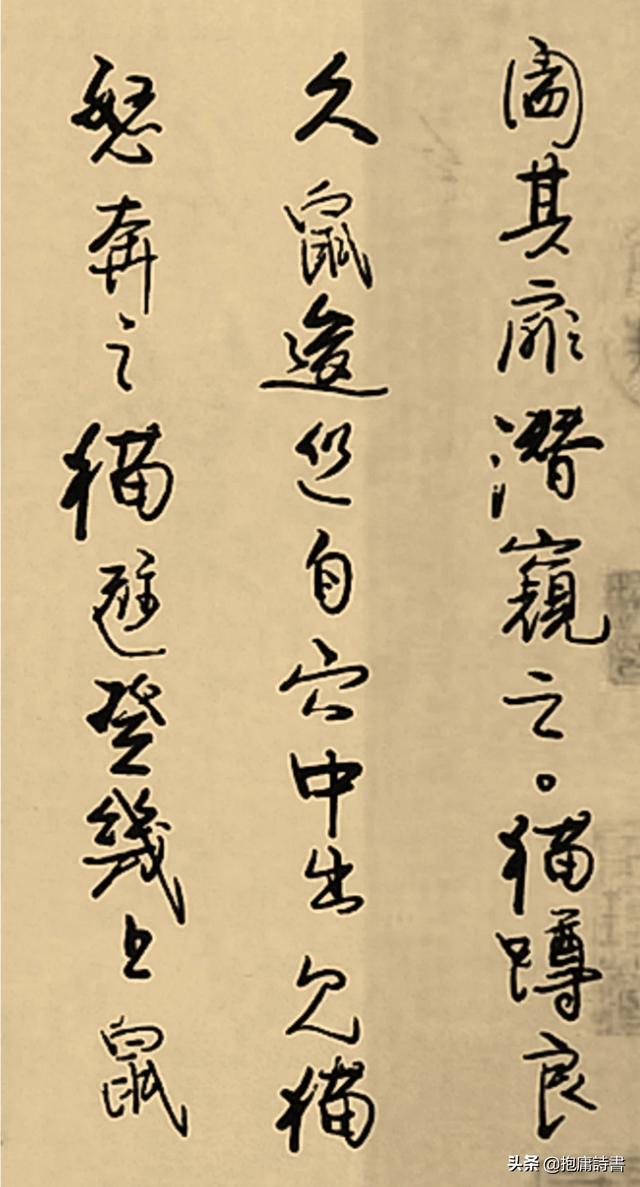 闔其扉潛窺之。猫蹲良
久鼠逡巡自穴中出見猫
怒奔之猫避登幾上鼠
头条 @抱庸詩書